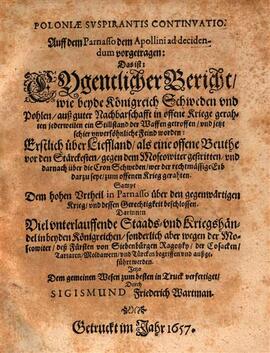 POLONIÆ SVSPIRANTIS CONTINVATIO.
Auff dem Parnasso dem Apollini ad deciden-
dum vorgetragen:
Das ist:
EYgentlicher Bericht/
wie beyde Königreich Schweden vnd
Pohlen/ auß guter Nachbarschafft in offene Kriege gerah-
ten jederweilen ein Stillstand der Waffen getroffen/ vnd jetzt
schier vnversöhnliche Feind worden:
Erstlich über Lieffland/ als eine offene Beuthe
vor den Stärckesten/ gegen dem Moscowiter gestritten/ vnd
darnach über die Cron Schweden/ wer der rechtmässige Erb
darzu sey/ zum offenen Krieg gerahten.
Sampt
Dem hohen Vrtheil in Parnasso über den gegenwärtigen
Krieg/ vnd dessen Gerechtigkeit beschlossen.
Darinnen
Viel vnterlauffende Staads/ vnd Kriegshän-
del in beyden Königreichen/ sonderlich aber wegen der Mo-
scowiter/ deß Fürsten von Siebenbürgen Ragotzky/ der Cosacken/
Tartaren/ Moldawern/ vnd Türcken begriffen vnd auß ge-
führt werden.
Jetzo
Dem gemeinen Wesen zum besten in Truck verfertiget/
Durch
SIGISMUND Friederich Wartman.
Getruckt im Jahr 1657.